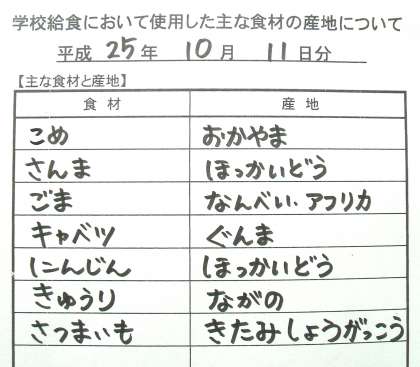 学校給食において使用した主な食材の産地について
平成 25年 10月 11日分
【主な食材と産地】
食材 産地
こめ おかやま
さんま ほっかいどう
ごま なんべい、アフリカ
キャベツ ぐんま
にんじん ほっかいどう
きゅうり ながの
さつまいも きたみしょうがっこう